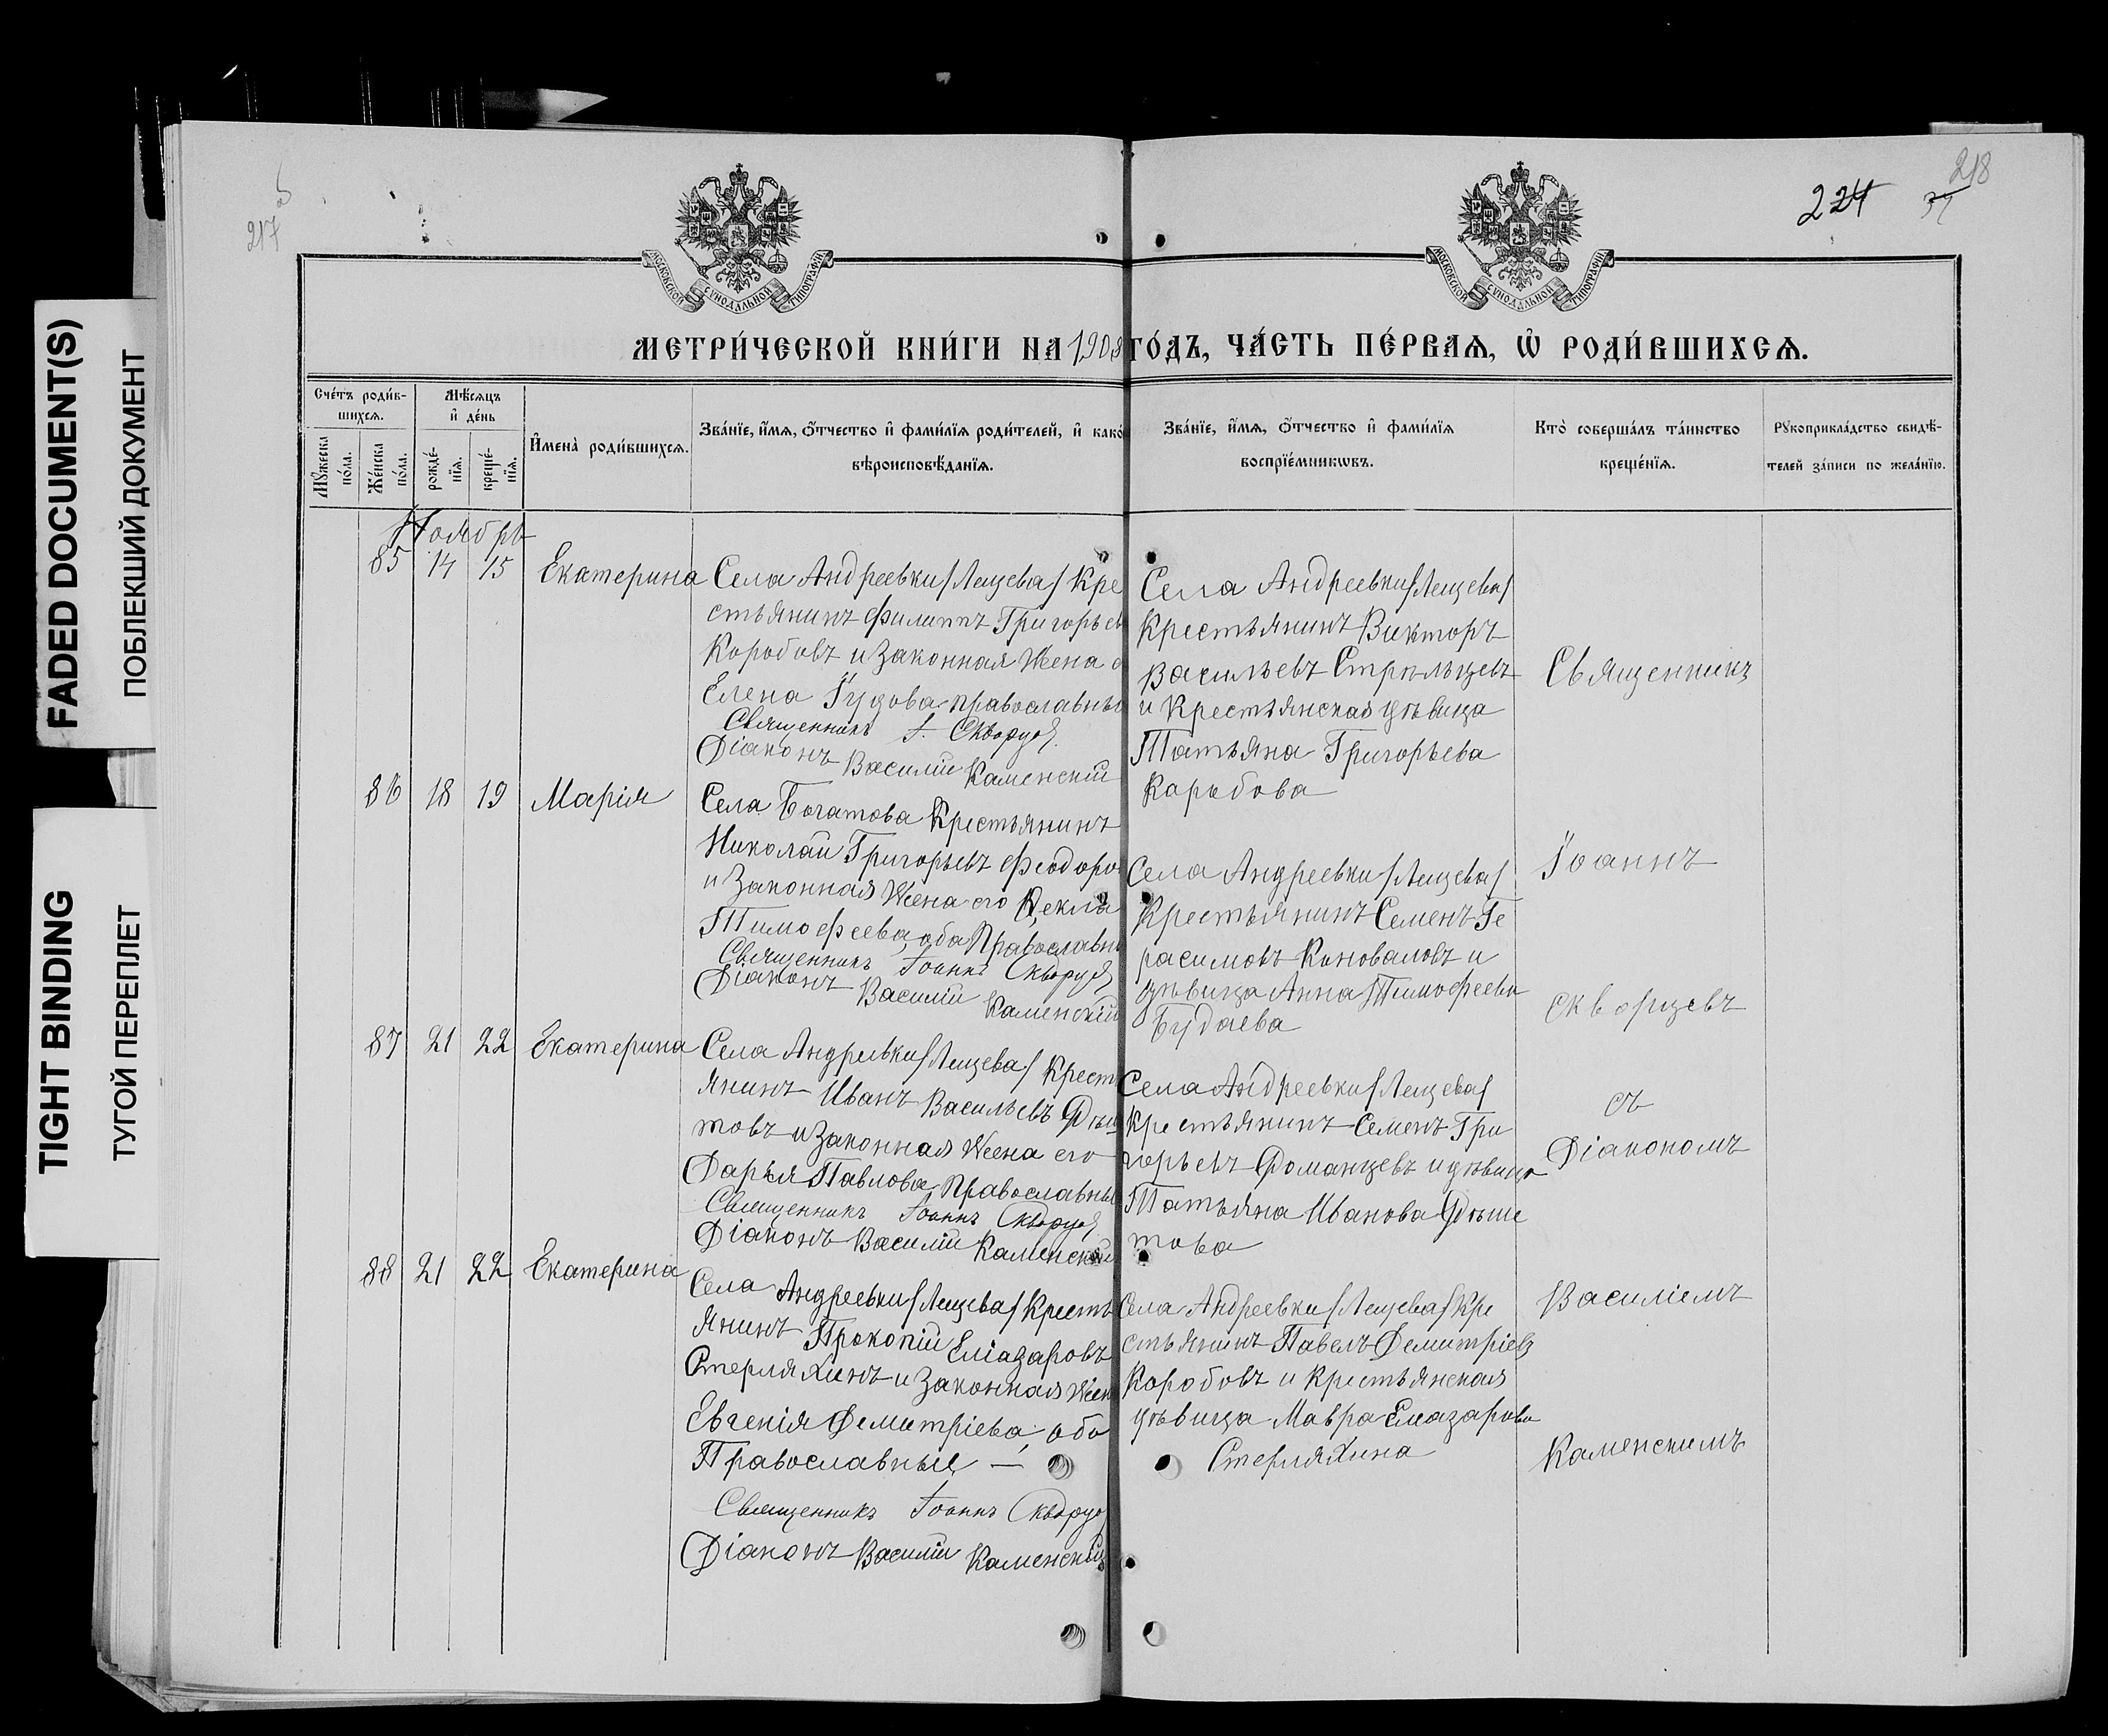 FADED DOCUMENT(S)
ПОБЛЕКШИЙ ДОКУМЕНТ
TIGHT BINDING
ТУГОЙ ПЕРЕПЛЕТ
217
218
224
МОСКОВСКОЙ СѴНОДАЛЬНОЙ ТИПОГРАФІИ
МОСКОВСКОЙ СѴНОДАЛЬНОЙ ТИПОГРАФІИ
МЕТРИ́ЧЕСКОЙ КНИ́ГИ НА 1903 ГО́ДЪ, ЧА́СТЬ ПЕ́РВАѦ, Ѡ҆ РОДИ́ВШИХСѦ.
Сче́тъ роди́в-
шихсѧ.
Мꙋ́жеска
по́ла.
Же́нска
по́ла.
Мѣ́сѧцъ
и҆ де́нь
рожде́-
нїѧ.
креще́-
нїѧ.
И҆мена̀ роди́вшихсѧ.
Зва́нїе, и҆́мѧ, ѻ҆́тчество и҆ фами́лїѧ роди́телей, и҆ како́
вѣроисповѣ́данїѧ.
Зва́нїе, и҆́мѧ, ѻ҆́тчество и҆ фами́лїѧ
воспрїе́мникѡвъ.
Кто̀ соверша́лъ та́инство
креще́нїѧ.
Рꙋкоприкла́дство свидѣ́-
телей за́писи по жела́нїю.
Ноябрь
85 14 15 Екатерина
Села Андреевки/Лещева/ Кре
стьянинъ Филиппъ Григорьев
Коробовъ и Законная Жена е
Елена Гудова православны
Священникъ І. Скворцов
Діаконъ Василій Каменскій
Села Андреевки/Лещева/
Крестьянинъ Викторъ
Васильевъ Стрѣльцевъ
и Крестьянская дѣвица
Татьяна Григорьева
Коробова
86 18 19 Марія
Села Богатова Крестьянинъ
Николай Григорьевъ Феодоро
и Законная Жена его Ѳекла
Тимофеева, оба Православн
Священникъ Іоаннъ Скворцов
Діаконъ Василій Каменскій
Села Андреевки/Лещева/
Крестьянинъ Семенъ Ге
расимовъ Коноваловъ и
дѣвица Анна Тимофеева
Будаева
87 21 22 Екатерина
Села Андреевки/Лещева/ Крест
янинъ Иванъ Васильевъ
товъ и Законная Жена его
Дарья Павлова Православны
Священникъ Іоаннъ Скворцов
Діаконъ Василій Каменскій
Села Андреевки/Лещева/
Крестьянинъ Семенъ Гри
горьевъ Романцевъ и дѣвица
Татьяна Иванова
това
88 21 22 Екатерина
Села Андреевки/Лещева/ Кресть
янинъ Прокопій Еліазаровъ
Стерляхинъ и Законная Жен
Евгенія Демитріева, оба
Православные —
Священникъ Іоаннъ Скворцов
Діаконъ Василій Каменскій
Села Андреевки/Лещева/ Кре
стьянинъ Павелъ Демитріевъ
Коробовъ и Крестьянская
дѣвица Мавра Елазарова
Стерляхина
Священникъ
Іоаннъ
Скворцевъ
съ
Діакономъ
Василіемъ
Каменскимъ